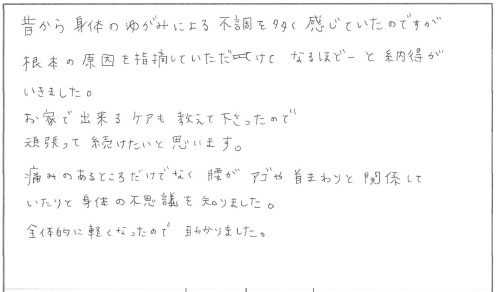 昔から身体のゆがみによる不調を多々く感じていたのですが
根本の原因を指摘していただけて なるほどーと納得が
いきました。
お家で出来るケアも教えて下さったので
頑張って続けたいと思います。
痛みのあるところだけでなく 腰が アゴや首まわりと関係して
いたりと身体の不思議を知りました。
全体的に軽くなったので 助かりました。